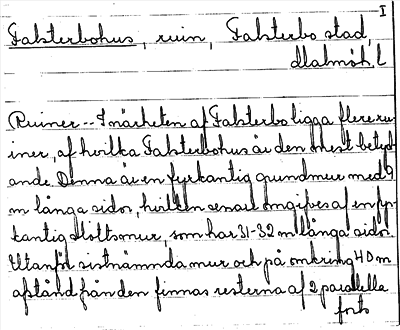 I
Falsterbohus, ruin, Falsterbo stad,
Malmöh. l
Ruiner -- I närheten af Falsterbo ligga flere ru
iner, af hvilka Falsterbohus är den mest betyd
ande. Denna är en fyrkantig grundmur med 9
m långa sidor, hvilken senare omgifves af en fyr
kantig slottsmur, som har 31-32 m långa sidor.
Utanför sistnämnda mur och på omkring 40 m
afstånd från den finnas resterna af 2 parallella
forts